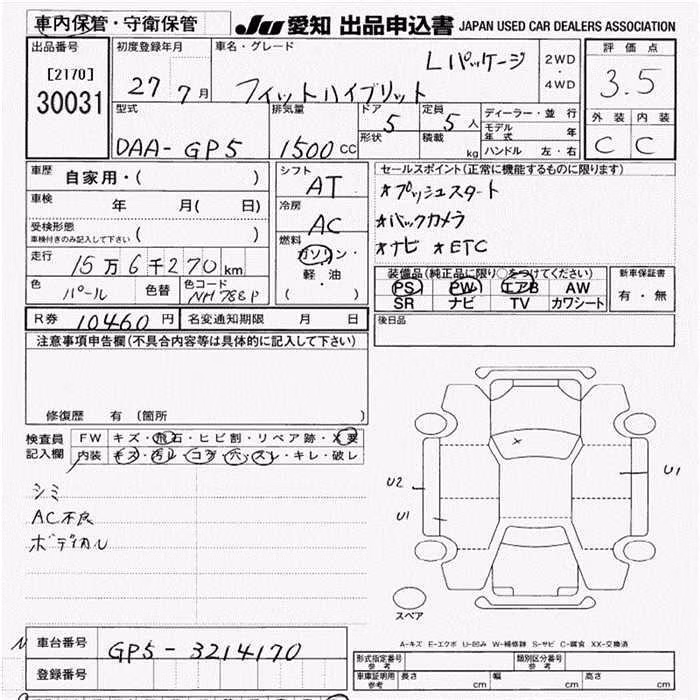 車内保管・守衛保管 JU 愛知 出品申込書 JAPAN USED CAR DEALERS ASSOCIATION
出品番号 [2170] 30031
初度登録年月 27 7月
車名・グレード Lパッケージ フィットハイブリット 2WD・4WD
評価点 3.5
外装 内装 C C
型式 DAA-GP5
排気量 1500 CC
ドア 5 形状
定員 5人 積載 kg
ディーラー・並行
モデル年式 年
ハンドル 左・右
車歴 自家用・( )
車検 年 月( 日)
受検形態 車検付きのみ記入して下さい ( )
走行 15万6千270km
色 パール 色替 色コード NH788P
シフト AT
冷房 AC
燃料 ガソリン・軽・油 ( )
セールスポイント(正常に機能するものに限ります)
*プッシュスタート
*バックカメラ
*ナビ *ETC
装備品(純正品に限り○をつけてください)
PS PW エアB AW
SR ナビ TV カワシート
新車保証書 有・無
後日品
R券 10460円 名変通知期限 月 日
注意事項申告欄(不具合内容等は具体的に記入して下さい)
修復歴 有 (箇所 )
検査員記入欄
FW キズ・飛石・ヒビ割・リペア跡・X要
内装 キズ・汚レ・コゲ・穴・スレ・キレ・破レ
シミ
AC不良
ボデイカル
U2
U1
U1
スペア
A-キズ E-エクボ U-凹み W-補修跡 S-サビ C-腐食 XX-交換済
車台番号 GP5-3214170
登録番号
形式指定番号 参考 類別区分番号 参考
車庫証明用 参考 長さ cm 幅 cm 高さ cm